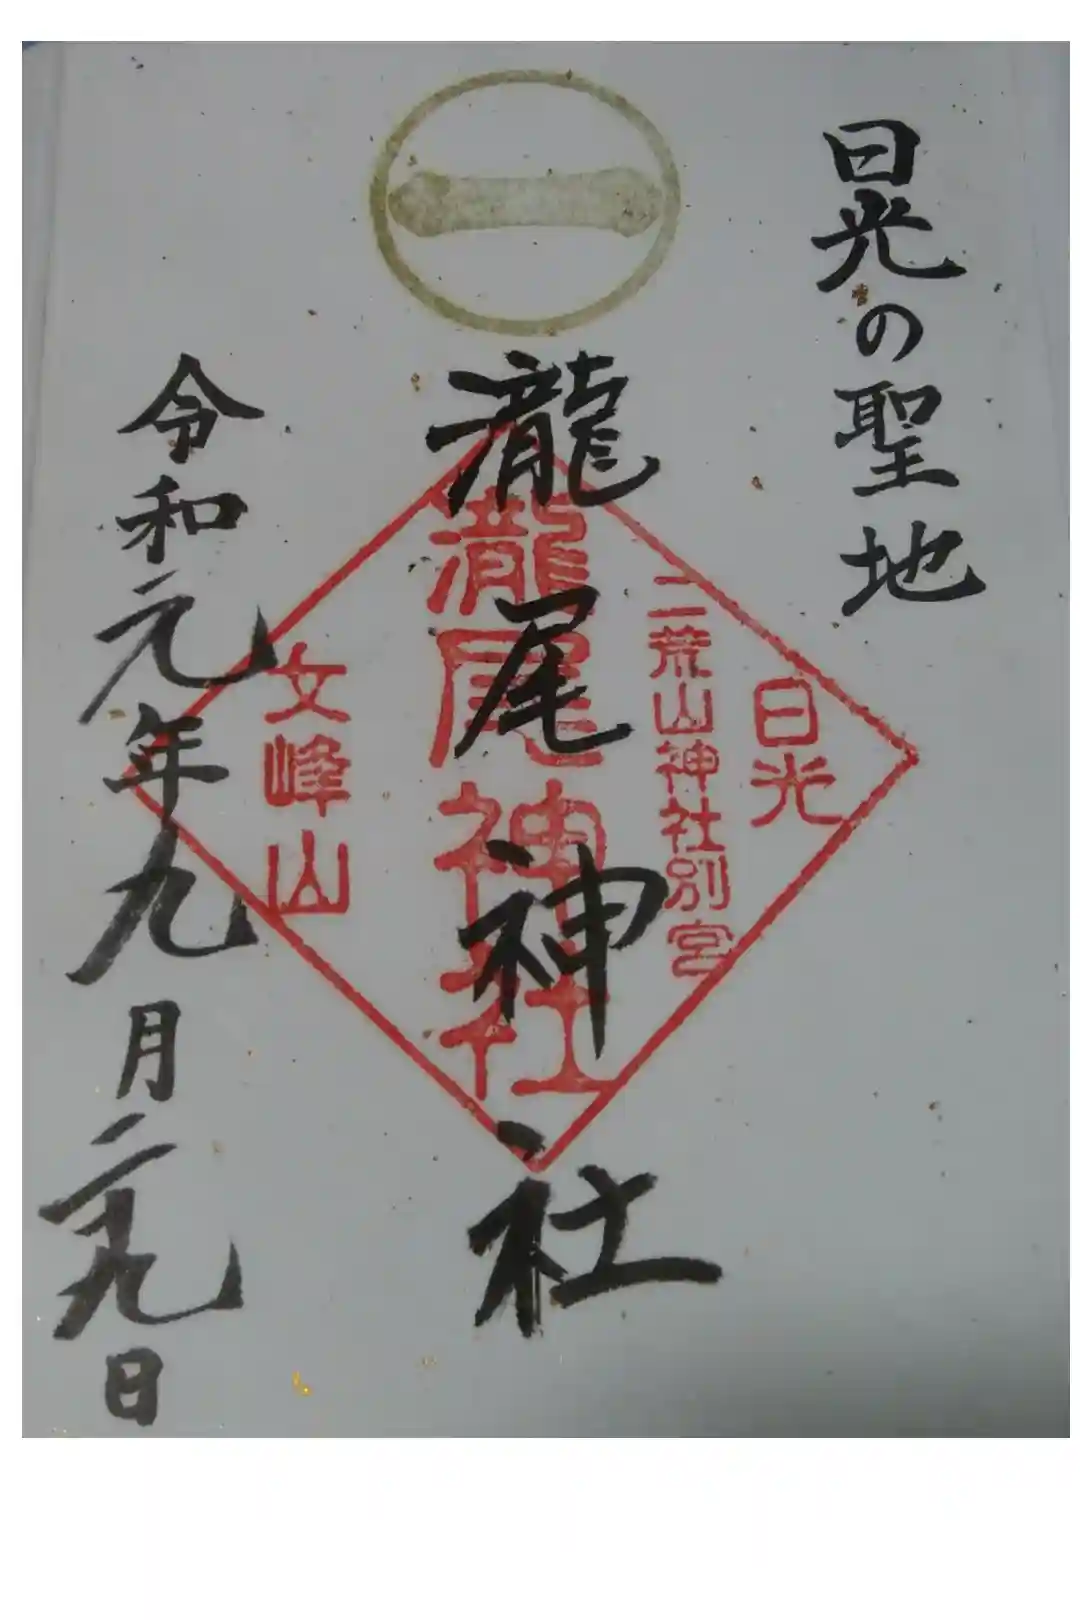 日光の聖地
日光
二荒山神社別宮
瀧尾神社
瀧尾神社
女峰山
令和元年九月二十九日